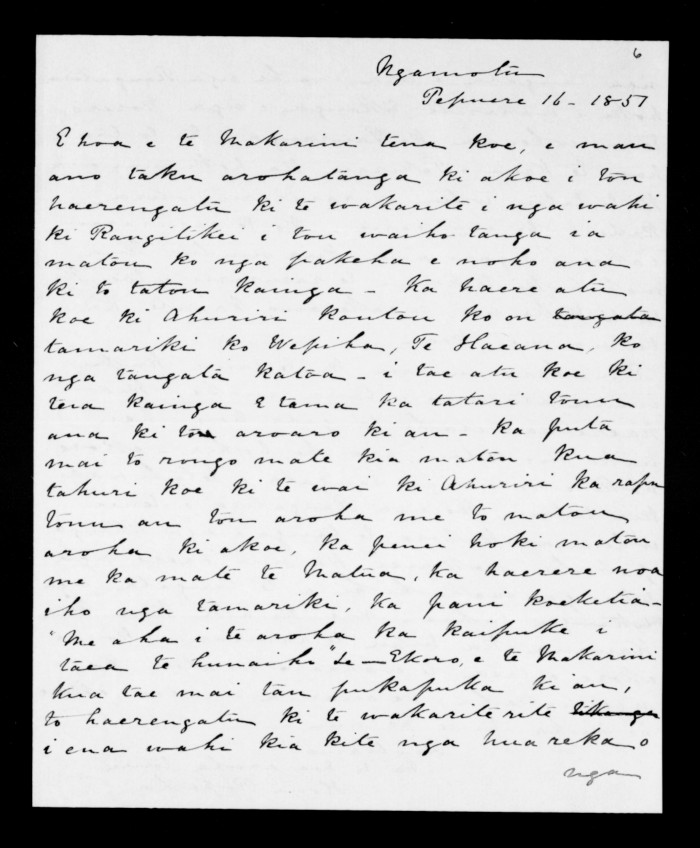 6
Ngamotu
Pepuere 16 - 1851
E hoa e te Makarini tena koe, e mau
ano taku arohatanga ki akoe i tou
haerengatu ki te wakarite i nga wahi
ki Rangitikei i tou waiho tanga ia
matou ko nga pakeha e noho ana
ki to tatou kainga - Ka haere atu
koe ki Ahuriri koutou ko ou tangata
tamariki ko Wepiha, Te Haeana, ko
nga tangata katoa - i tae atu koe ki
tera kainga E tama ka tatari tonu
ana ki tou aroaro ki au - ka puta
mai to rongo mate kia matou kua
tahuri koe ki te wai ki Ahuriri ka rapu
tonu au tou aroha me to matou
aroha ki akoe, ka penei hoki matou
me ka mate te Matua, ka haerere noa
iho nga tamariki, ka pani koeketia -
"Me aha i te aroha ka kaipuke i
taea te hunaihi" &c - Ekoro, e te Makarini
kua tae mai tau pukapuka ki au,
to haerengatu ki te wakariterite tikanga
i ena wahi kia kite nga hua reka o
nga